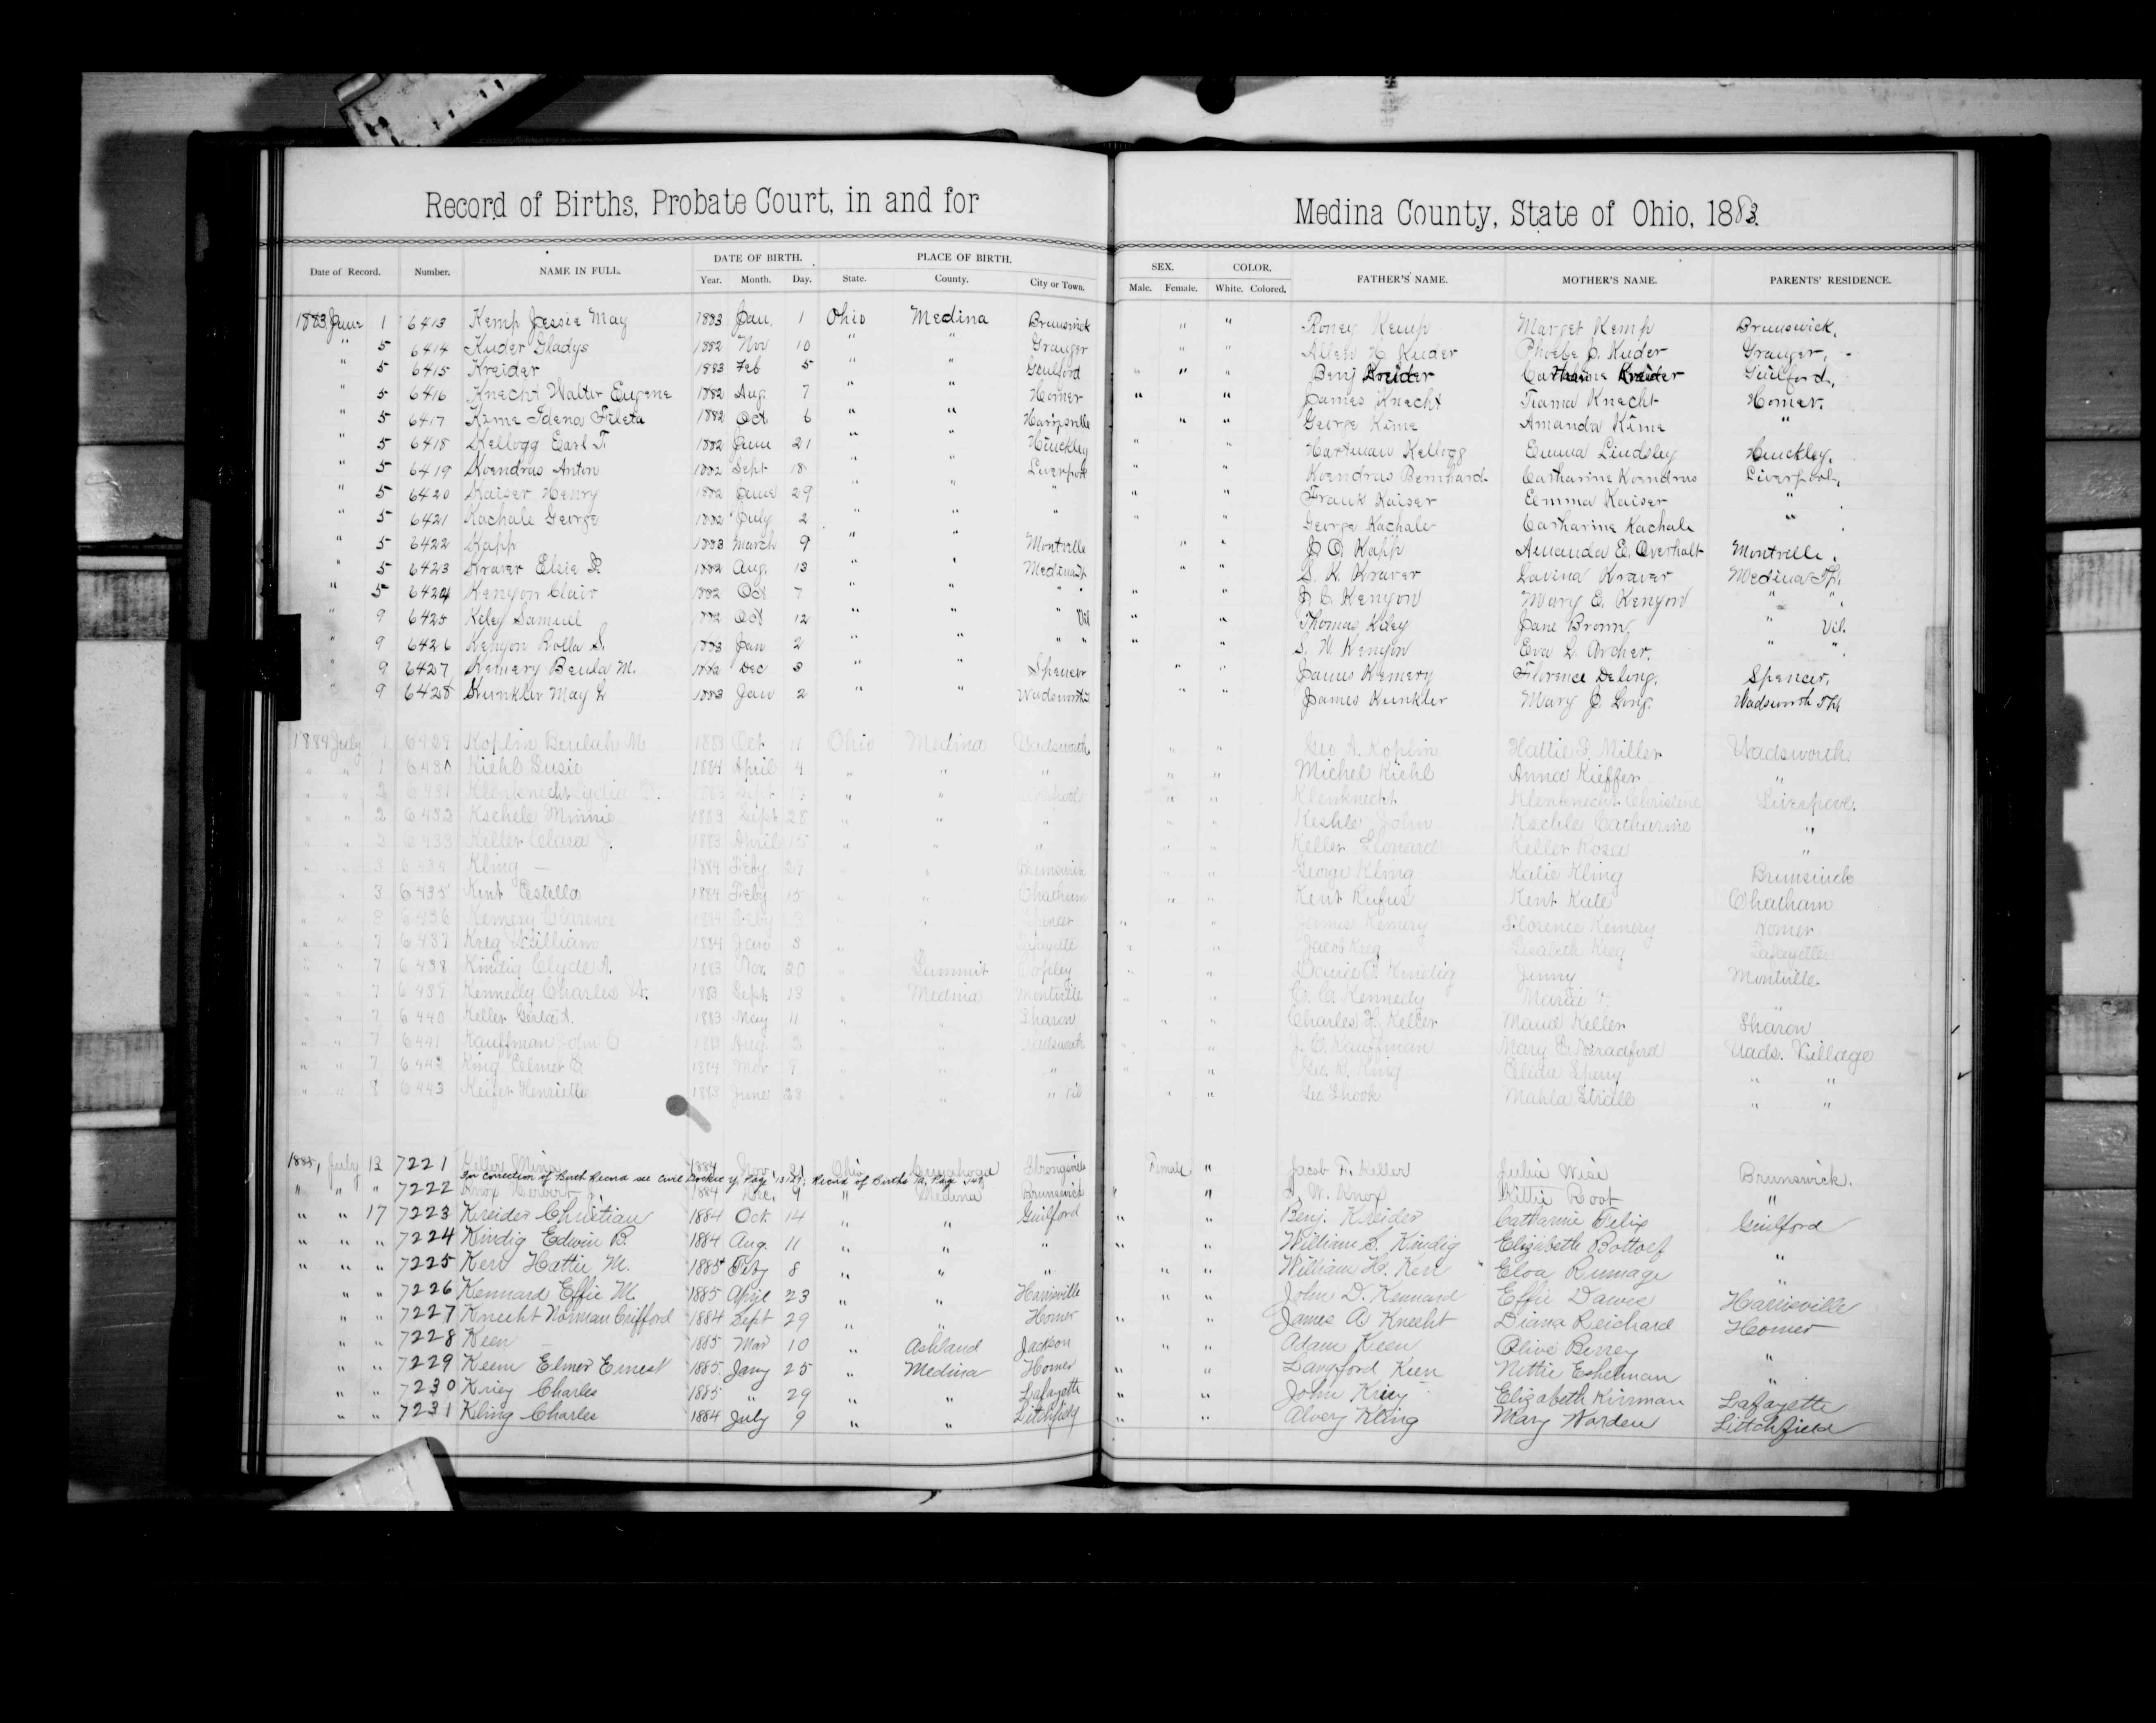 Record of Births, Probate Court, in and for Medina County, State of Ohio, 1883.
DATE OF BIRTH. PLACE OF BIRTH. SEX. COLOR.
Date of Record. Number. NAME IN FULL. Year. Month. Day. State. County. City or Town. Male. Female. White. Colored. FATHER'S NAME. MOTHER'S NAME. PARENTS' RESIDENCE.
1883 June 1 6413 Kemp Jessie May 1883 Jan. 1 Ohio Medina Brunswick " " Roney Kemp Marget Kemp Brunswick.
" 5 6414 Kuder Gladys 1882 Nov 10 " " Granger " " Allen H Kuder Phoebe J. Kuder Granger.
" 5 6415 Kreider 1883 Feb 5 " " Guilford " " Benj Kreider Catharine Kreider Guilford.
" 5 6416 Knecht Walter Eugene 1882 Aug. 7 " " Homer " " James Knecht Knecht Homer.
" 5 6417 Kime Idena Fileta 1882 Oct 6 " " Harrisville " " George Kime Amanda Kime "
" 5 6418 Kellogg Earl F. 1882 June 21 " " Hinckley " " Hartman Kellogg Emma Lindsley Hinckley.
" 5 6419 Koendras Anton 1882 Sept 18 " " Liverpool " " Koendras Bernhard Catharine Koendras Liverpool.
" 5 6420 Kaiser Henry 1882 June 29 " " " " " Frank Kaiser Emma Kaiser "
" 5 6421 Kachale George 1882 July 2 " " " " " George Kachale Catharine Kachale "
" 5 6422 Kapp 1883 March 9 " " Montville " " J. O. Kapp Amanda E. Overholt Montville.
" 5 6423 Kraver Elsie 1882 Aug. 13 " " Medina Tp. " " S. K. Kraver Lavina Kraver Medina Tp.
" 5 6424 Kenyon Clair 1882 Oct 7 " " " " " J. C. Kenyon Mary E. Kenyon " "
" 9 6425 Kiley Samuel 1882 Oct 12 " " " Vil " " Thomas Kiley Jane Brown " Vil.
" 9 6426 Kenyon Rolla S. 1883 Jan 2 " " " " " " S. W. Kenyon Eva L. Archer. " "
" 9 6427 Kemery Beula M. 1882 Dec 3 " " Spencer " " James Kemery Florence Delong. Spencer.
" 9 6428 Kunkler May 1883 Jan 2 " " Wadsworth " " James Kunkler Mary J. Long. Wadsworth
1884 July 1 6429 Koplin Beulah M 1883 Oct 11 Ohio Medina Wadsworth " " Geo A. Koplin Hattie Miller Wadsworth
" " 1 6430 Kiehl Susie 1884 April 4 " " " " " Michel Kiehl Anna Kieffer "
" " 2 6431 Klenknecht Lydia 1883 Sept " " Liverpool " " Klenknecht Klenknecht Christine Liverpool.
" " 2 6432 Kschele Minnie 1883 Sept 28 " " " " " Keshle John Kschle Catharine "
" " 2 6433 Keller Clara J. 1883 April 15 " " " " " Keller Leonard Keller Rosa "
" " 3 6434 Kling — 1884 Feby " " Brunswick " " George Kling Katie Kling Brunswick
" " 3 6435 Kent Estella 1884 Feby 15 " " Chatham " " Kent Rufus Kent Kate Chatham
" " 6436 Kemery Clarence 1884 Feby " " Spencer " " James Kemery Florence Kemery Homer
" " 7 6437 Kreg William 1884 June 3 " " Lafayette " " Jacob Kreg Lisabeth Kreg Lafayette
" " 7 6438 Kindig Clyde A. 1883 Nov. 20 " Summit Copley " " Daniel A Kindig Jenny Montville
" " 7 6439 Kennedy Charles 1883 Sept. 13 " Medina Montville " " Kennedy "
" " 7 6440 Keller A. 1883 May 11 " " Sharon " " Charles H. Keller Maud Keller Sharon
" " 7 6441 Kauffman 1883 Aug. 2 " " Wadsworth " " J. C. Kauffman Mary E. Bradford Wads. Village
" " 7 6442 King Elmer 1884 Mar 8 " " " " " Geo. King Sperry " "
" " 8 6443 Keifer Henrietta 1883 June 28 " " " Vil " " Geo Shook Mahla " "
1885, July 13 7221 Keller Mina 1884 Nov 21 Ohio Cuyahoga Strongsville Female " Jacob F. Keller Julia Wise Brunswick.
For correction of Birth Record see Civil Docket Page Record of Births Page
" " " 7222 Knox Herbert 1884 Dec. 9 " Medina Brunswick " " W. Knox Kittie Root "
" " 17 7223 Kreider Christian 1884 Oct. 14 " " Guilford " " Benj. Kreider Catharine Felix Guilford
" " " 7224 Kindig Edwin B. 1884 Aug. 11 " " " " " William S. Kindig Elizabeth Bottorf "
" " " 7225 Kerr Hattie M. 1885 Feby 8 " " " " " William H. Kerr Eloa Rumage "
" " 7226 Kennard Effie M. 1885 April 23 " " Harrisville " " John D. Kennard Effie Dawes Harrisville
" " 7227 Knecht Norman Clifford 1884 Sept 29 " " Homer " " James A Knecht Diana Reichard Homer
" " 7228 Keen — 1885 Mar 10 " Ashland Jackson " " Adam Keen Olive Berrey "
" " 7229 Keen Elmer Ernest 1885. Jany 25 " Medina Homer " " Langford Keen Nettie Eshelman "
" " 7230 Kriey Charles 1885 " 29 " " Lafayette " " John Kriey Elizabeth Kinman Lafayette
" " 7231 Kling Charles 1884 July 9 " " Litchfield " " Alvery Kling Mary Warden Litchfield